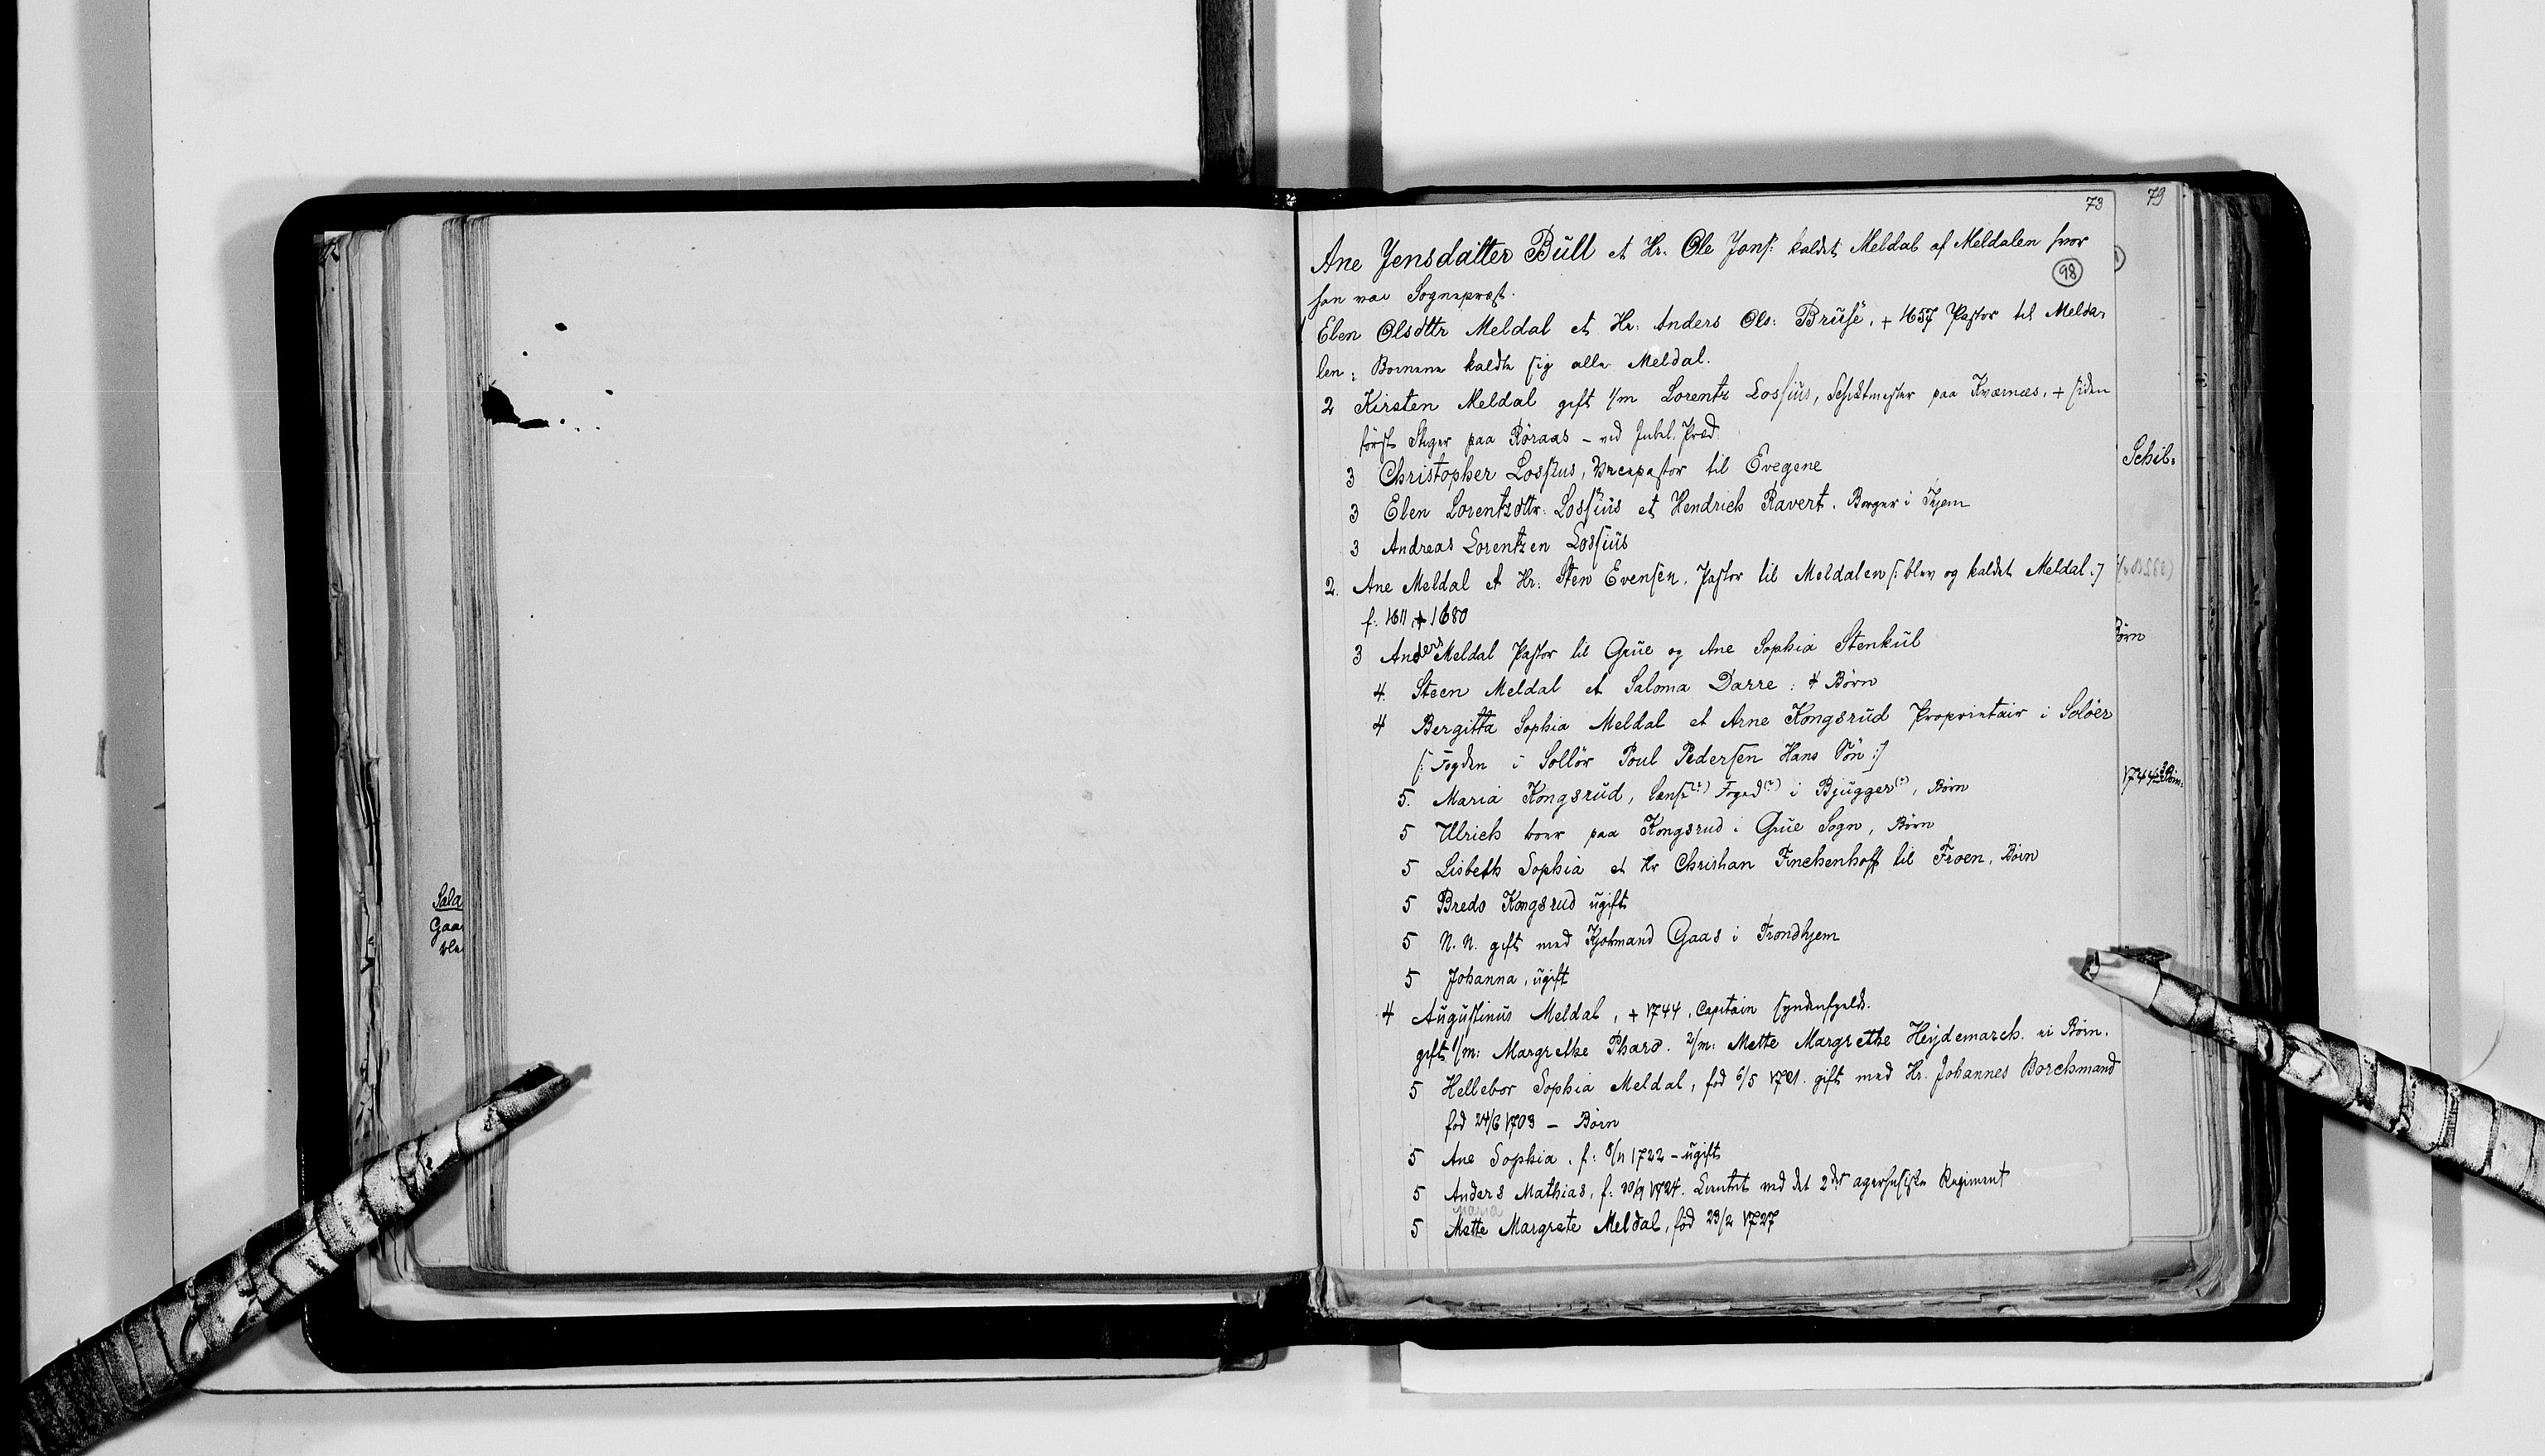 73
79
Ane Jensdatter Büll et Hr. Ole Jons: kaldet Meldal af Meldalen hvor
98
han var Sognepræst.
Elen Olsdttr Meldal et Hr. Anders Ols: Brüse, + 1657 Pastor til Melda-
len: Børnene kaldte sig alle Meldal.
2 Kirsten Meldal gift 1/m Lorentz Lossius, paa Kværnes, + siden
først Stiger paa Röraas - ved Jubel. Præd.
3 Christopher Lossius, Vicepastor til Evegene
3 Elen Lorentzdttr. Lossius et Hendrich Ravert. Borger i Thjem
3 Andreas Lorentzen Lossiüs
2. Ane Meldal et Hr. Sten Evensen. Pastor til Meldalen (: blev og kaldet Meldal:)
f. 1611 + 1680
3 Anders Meldal Pastor til Grüe og Ane Sophia Stenkül
4 Steen Meldal et Saloma Darre: 4 Børn
4 Bergitta Sophia Meldal et Arne Kongsrüd Proprietair i Solöer
(: Fogden i Sollör Poul Pedersen Hans Sön :)
5. Maria Kongsrüd, Lens(?) Foged(?) i Bjugger(?), Børn
5 Ulrich boer paa Kongsrud i Grüe Sogn, Børn
5 Lisbeth Sophia et Hr Christian Finchenhoff til Froen. Børn
5 Bredo Kongsrud ügift
5 N. N. gift med Kjøbmand Gaas i Trondhjem
5 Johanna, ügift
4 Augustinus Meldal, + 1744, Capitain syndenfjelds.
gift 1/m: Margrethe Pharo. 2/m: Mette Margrethe Heÿdemarch. ei Børn.
5 Hellebor Sophia Meldal, fød 6/5 1721. gift med Hr. Johannes Borchmand
fød 24/6 1703 - Børn
5 Ane Sophia. f: 8/11 1722 - ügift
5 Anders Mathias, f: 30/9 1724. Lieutnt ved det 2det agershusiske Regiment
Maria
5 Mette Margrete Meldal, fød 23/2 1727
Schil=
Børn
1744
Sala
Gaa